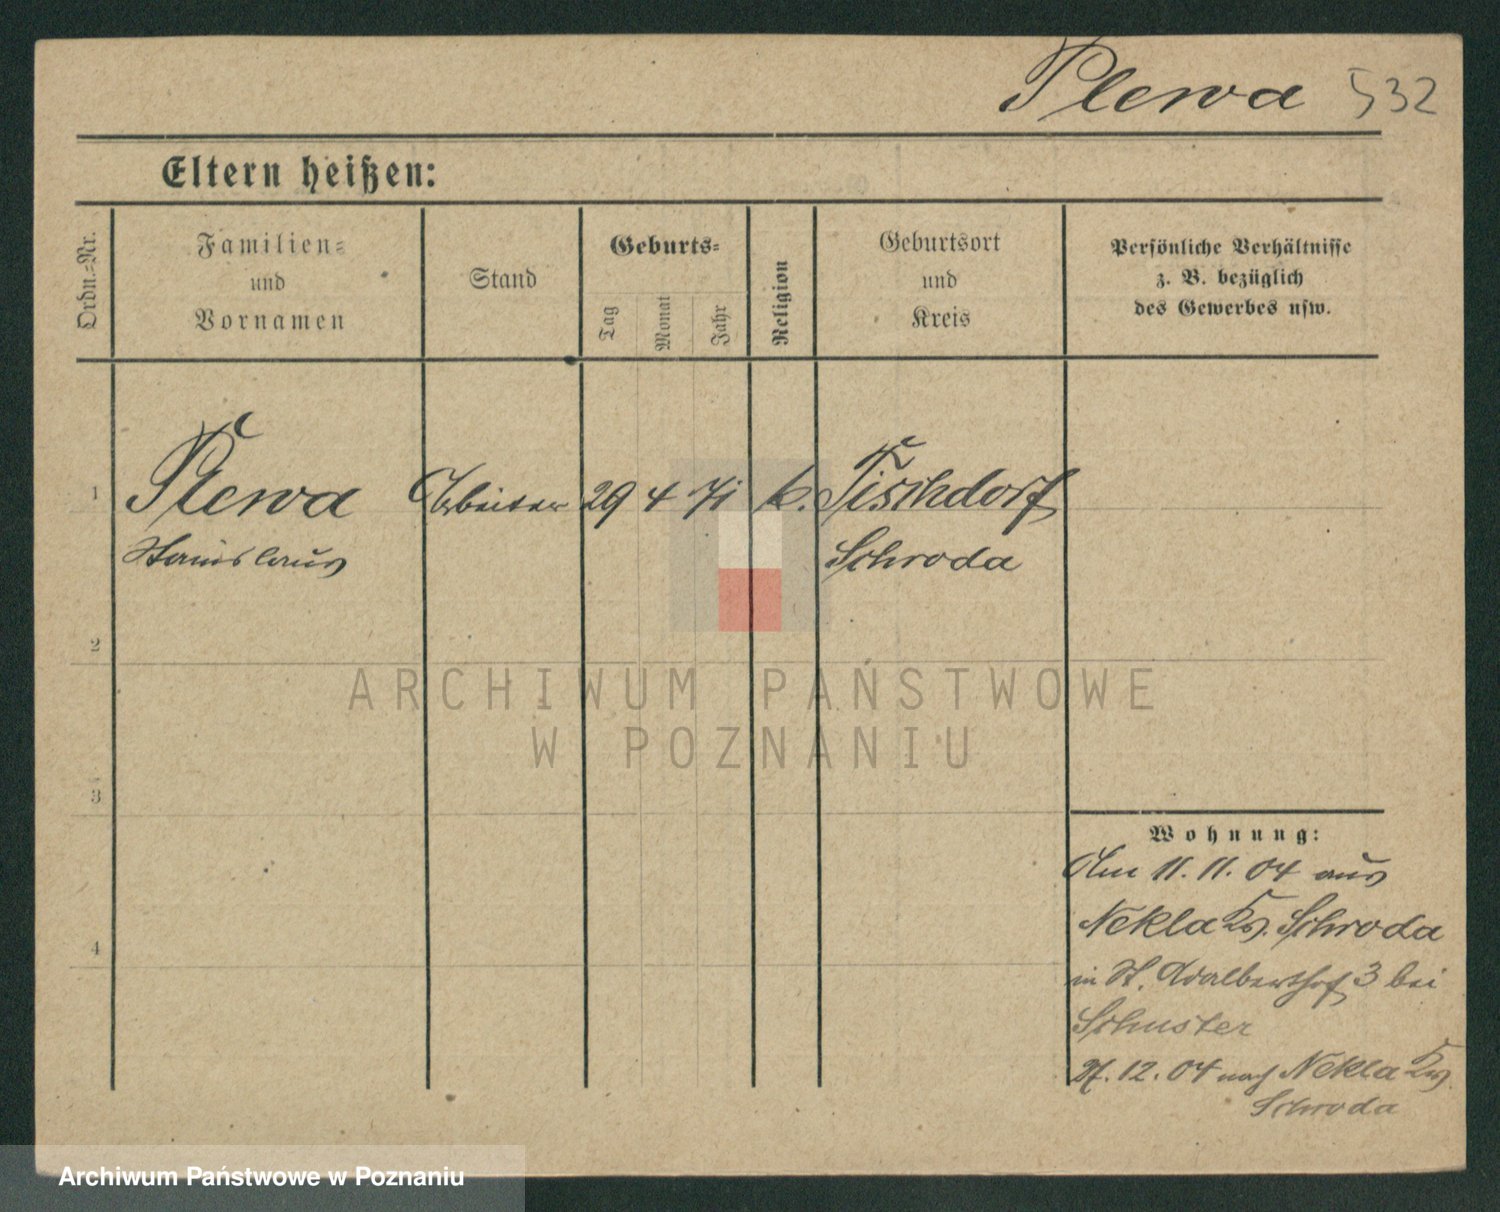 Plewa 532
Eltern heißen:
Ordn.-Nr.
Familien-
und
Vornamen
Stand
Geburts-
Tag
Monat
Jahr
Religion
Geburtsort
und
Kreis
Persönliche Verhältnisse
z. B. bezüglich
des Gewerbes usw.
1 Plewa Arbeiter 29 4 71 k. Tischdorf
Stanislaus Schroda
2
3
4
Wohnung:
Am 11. 11. 04 aus
Nekla Krs. Schroda
in St. Adalberthof 3 bei
Schuster
27. 12. 04 nach Nekla Krs.
Schroda
ARCHIWUM PAŃSTWOWE
W POZNANIU
Archiwum Państwowe w Poznaniu